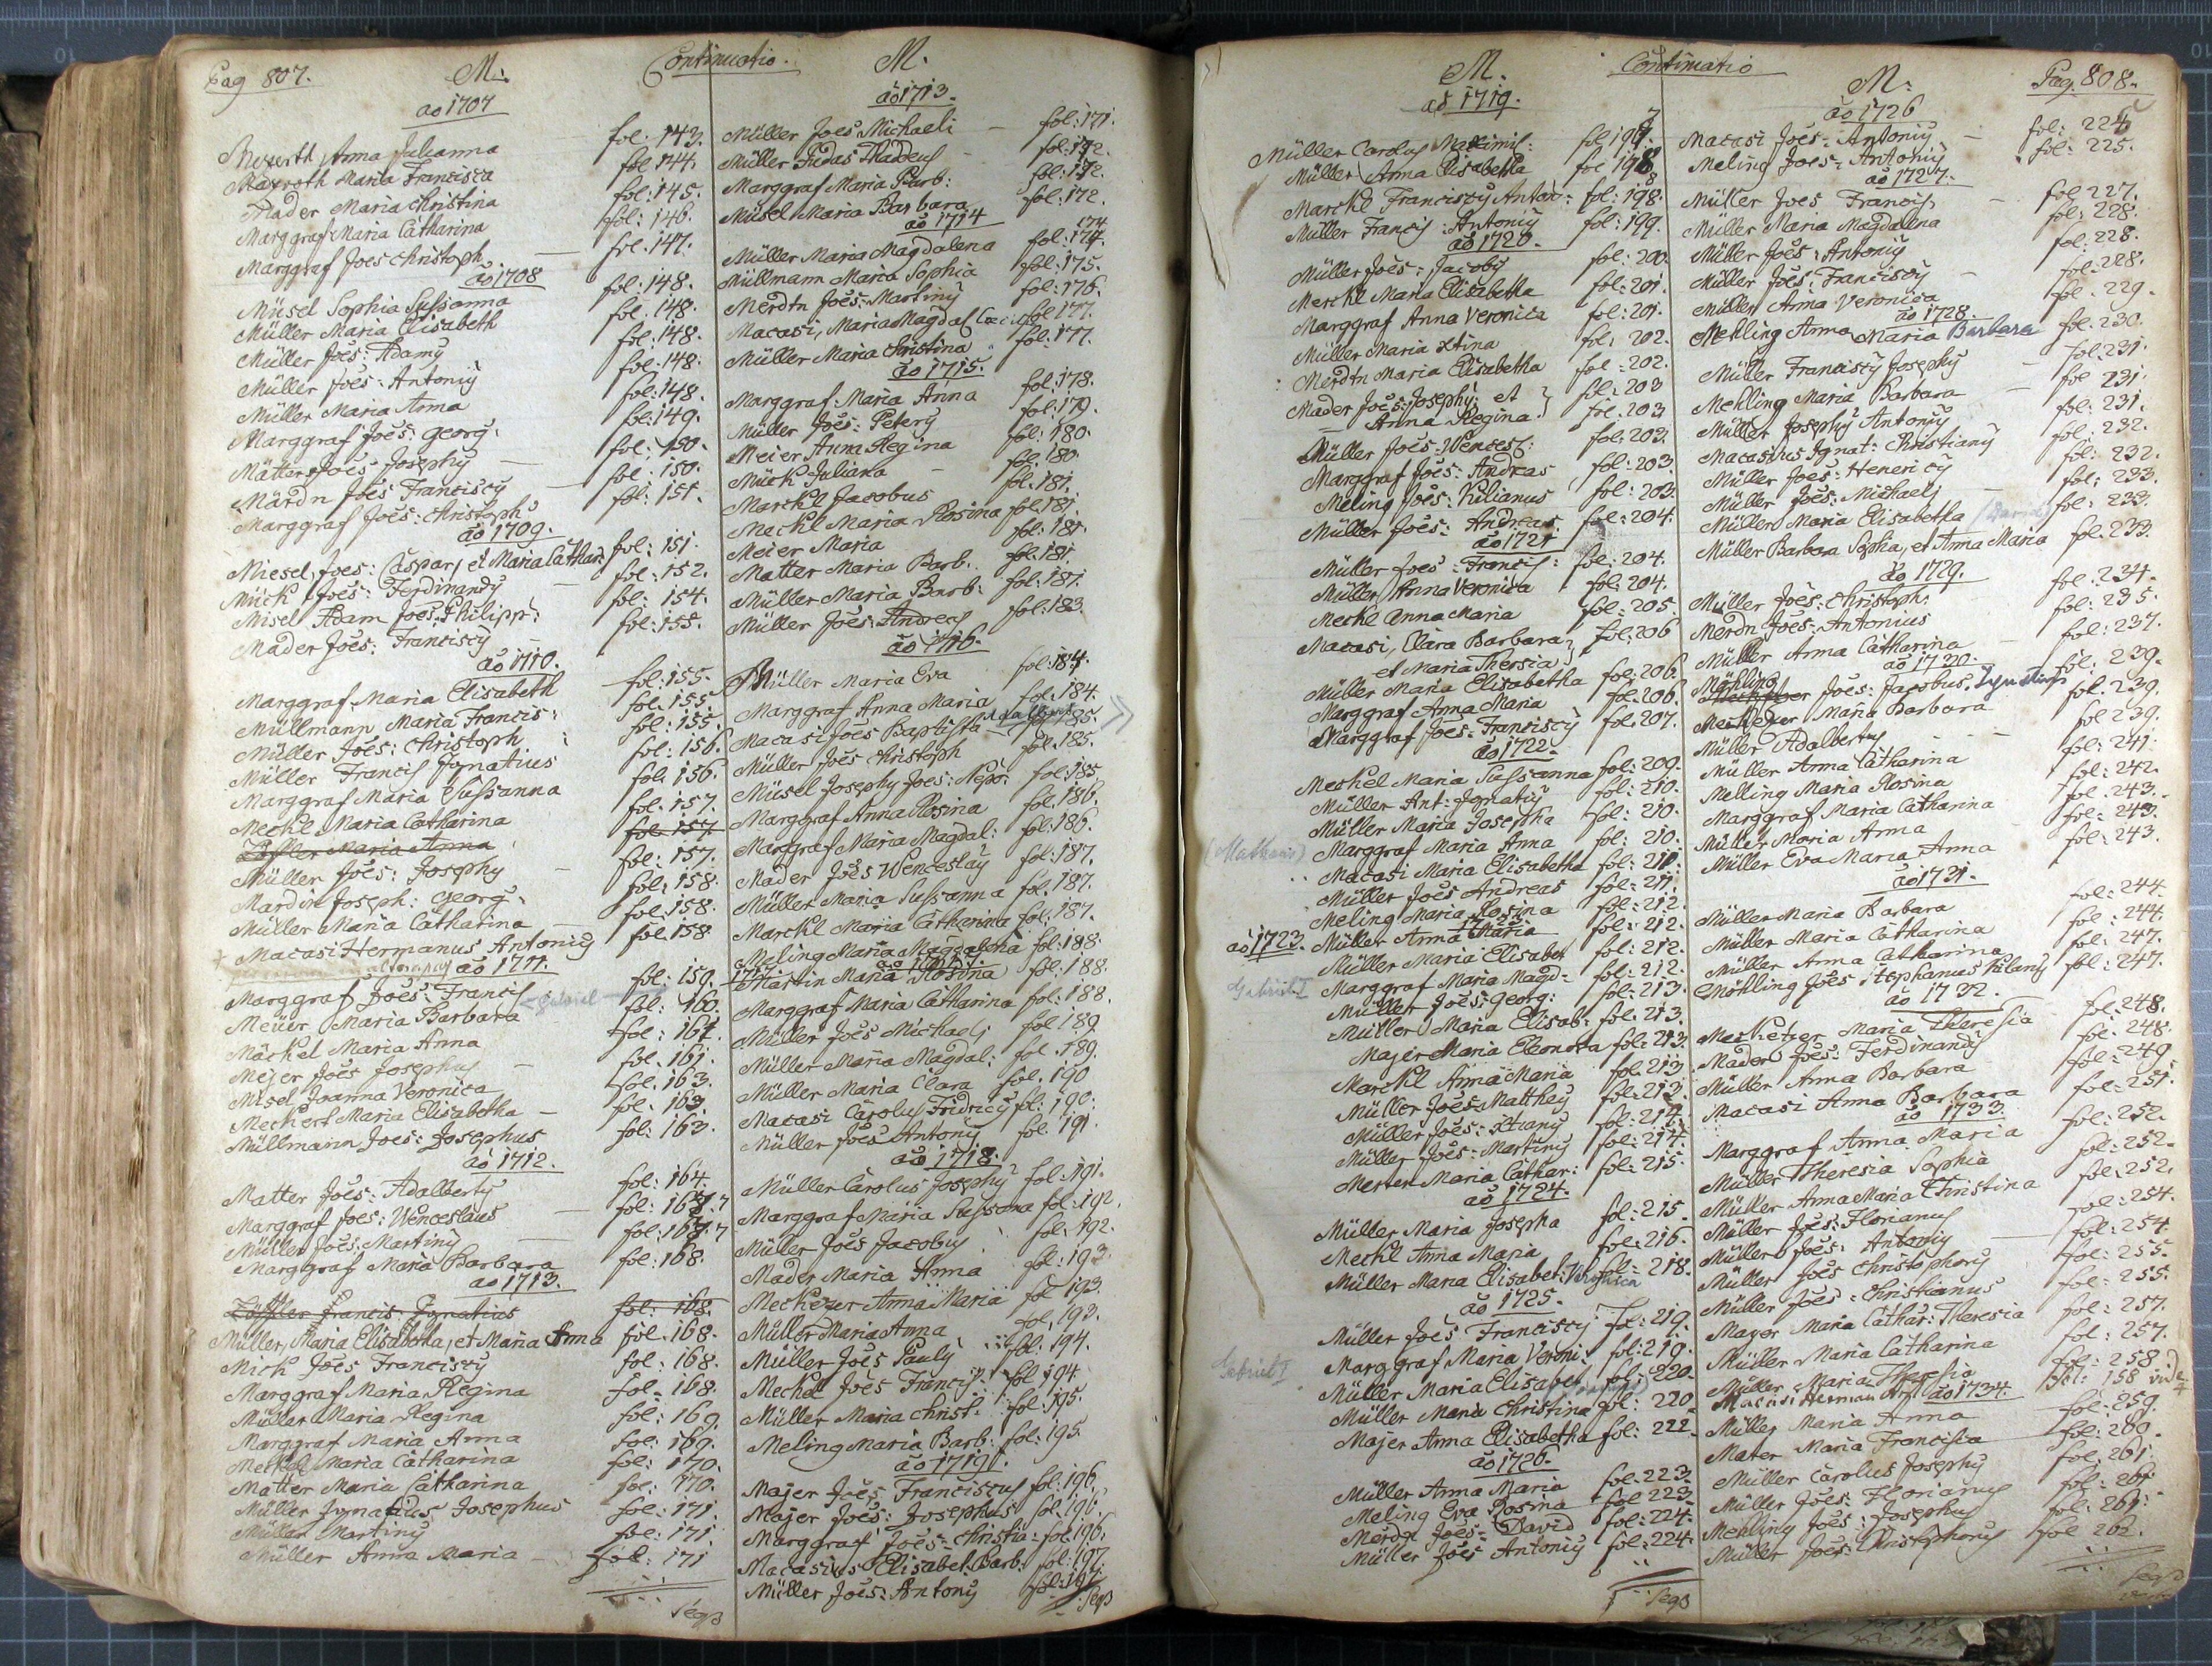 Pag 807. M: Continuatio.
ao 1707
Anna Julianna fol. 143.
Mayroth Maria Francisca fol 144.
Mader Maria Christina fol: 145.
Marggraf Maria Catharina fol: 146.
Marggraf Joes Christoph. fol. 147.
ao 1708
Müsel Sophia Sussanna fol: 148.
Müller Maria Elisabeth fol: 148.
Müller Joes: Adamy fol: 148.
Müller Joes: Antoniy fol: 148.
Müller Maria Anna fol: 148.
Marggraf Joes: Georg: fol: 149.
Matter Joes Josephy fol: 150.
Märdn Joes Franciscy fol: 150.
Marggraf Joes: Christoph fol: 151.
ao 1709.
Miesel, Joes: Caspary et Maria Cathar: fol: 151.
Mück Joes: Ferdinandy fol: 152.
Misel Adam Joes: Philipp: fol: 154.
Mader Joes: Franciscy fol: 155.
ao 1710.
Marggraf Maria Elisabeth fol: 155.
Müllmann Maria Francis: fol: 155.
Müller Joes: Christoph fol: 155.
Müller Francis Ignatius fol: 156.
Marggraf Maria Sussanna fol. 156.
Meckl Maria Catharina fol. 157.
Löffler Maria Anna fol: 157.
Müller Joes: Josephy fol: 157.
Mardin Joseph: Georg: fol: 158.
Müller Maria Catharina fol: 158.
Macasi Hermanus Antoniy fol. 158
ao 1711.
Marggraf Joes: Francis fol: 159.
Meüer Maria Barbara fol: 160.
Mäckel Maria Anna fol: 161.
Mejer Joes Josephus fol: 161.
Misel Joanna Veronica fol. 163.
Meckert Maria Elisabetha fol: 163.
Müllmann Joes: Josephus fol: 163.
ao 1712.
Matter Joes: Adalberty fol: 164.
Marggraf Joes: Wenceslaus
Müller Joes: Martiny
Marggraf Maria Barbara fol: 168.
ao 1713.
Löffler Francis: Ignatius fol: 168.
Müller, Maria Elisabetha, et Maria Anna fol: 168.
Mick Joes Franciscy fol: 168.
Marggraf Maria Regina fol: 168.
Müller Maria Regina fol: 169.
Marggraf Maria Anna fol: 169.
Meckel Maria Catharina fol: 170.
Matter Maria Catharina fol: 170.
Müller Ignatius Josephus fol: 171.
Müller Martiny fol: 171.
Müller Anna Maria fol: 171
Seqs
M.
ao 1713.
Müller Joes Michaeli fol: 171.
Müller Judas Thaddeus fol: 172.
Marggraf Maria Barb: fol: 172.
Müsel Maria Barbara fol: 172.
ao 1714
Müller Maria Magdalena fol: 174.
Müllmann Maria Sophia fol: 175.
Merdtn Joes: Martiny fol: 176.
Macasi, Maria Magdal fol 177.
Müller Maria Christina fol: 177.
ao 1715.
Marggraf Maria Anna fol: 178.
Müller Joes: Petery fol: 179.
Meier Anna Regina fol: 180.
Mück Juliana fol: 180.
Marckl Jacobus fol: 181.
Meckl Maria Rosina fol: 181.
Meier Maria fol: 181.
Matter Maria Barb. fol: 181.
Müller Maria Barb: fol: 181.
Müller Joes: Andrecy fol: 183.
ao 1716.
Müller Maria Eva fol: 184.
Marggraf Anna Maria fol: 184.
Macasi Joes Baptista fol: 185.
Müller Joes Christoph fol. 185.
Müsel Josephy Joes: Nepo: fol: 185.
Marggraf Anna Rosina fol. 186.
Marggraf Maria Magdal: fol: 186.
Mader Joes Wenceslay fol: 187.
Müller Maria Sussanna fol. 187.
Marckl Maria Catharina fol: 187.
Meling Maria Magdalena fol: 188.
1717.
Martin Maria Rosina fol: 188.
Marggraf Maria Catharina fol: 188.
Müller Joes Michaely fol 189
Müller Maria Magdal: fol. 189.
Müller Maria Clara fol. 190
Macasi Carolus Fridricy fol: 190.
Müller Joes Antoniy fol. 191.
ao 1718.
Müller Carolus Josephy fol: 191.
Marggraf Maria Sussana fol: 192.
Müller Joes Jacobus fol: 192.
Mader Maria Anna fol: 193.
Meckezer Anna Maria fol 193.
Müller Maria Anna fol. 193.
Müller Joes Pauly fol: 194.
Meckel Joes Francis: fol 194.
Müller Maria Christ: fol: 195.
Meling Maria Barb: fol: 195.
ao 1719.
Majer Joes Franciscus fol: 196.
Majer Joes: Josephus fol. 196.
Marggraf Joes: Christia: fol. 196.
Macasius Elisabet. Barb: fol: 197.
Müller Joes: Antoniy fol: 197.
Seqs
M. Continuatio
ao 1719.
Müller Carolus Maximil:
Müller Anna Elisabetha fol 198
Marckl Franciscy Anton: fol: 198.
Müller Francis: Antoniy fol: 199.
ao 1720.
Müller Joes: Jacoby fol: 200.
Merckl Maria Elisabetha fol: 201.
Marggraf Anna Veronica fol: 201.
Müller Maria Xtina fol: 202.
Merdtn Maria Elisabetha fol: 202.
Mader Joes: Josephy: et fol: 203
Anna Regina fol. 203
Müller Joes: Wencesl: fol: 203.
Marggraf Joes: Andreas fol: 203
Meling Joes: Kilianus fol: 203.
Müller Joes: Andreas fol: 204.
ao 1721
Müller Joes: Francis: fol: 204.
Müller Anna Veronica fol: 204.
Meckl Anna Maria fol: 205.
Macasi, Clara Barbara fol: 206
et Maria Thersia
Müller Maria Elisabetha fol: 206.
Marggraf Anna Maria fol: 206.
Marggraf Joes: Franciscy fol: 207.
ao 1722.
Meckel Maria Sussanna fol: 209.
Müller Ant: Ignatiy fol: 210.
Müller Maria Josepha fol: 210.
Marggraf Maria Anna fol: 210.
Macasi Maria Elisabetha
Müller Joes Andreas fol: 211.
Meling Maria Rosina fol: 212.
ao 1723. Müller Anna Maria fol: 212.
Müller Maria Elisabet fol: 212.
Marggraf Maria Magd: fol: 212.
Müller Joes: Georg: fol: 213.
Müller Maria Elisab: fol: 213.
Majer Maria Eleonora fol: 213.
Marckl Anna Maria fol: 213
Müller Joes: Matthey fol: 213.
Müller Joes: Xtiany fol: 214.
Müller Joes: Martiny fol: 214.
Maria Cathar: fol: 215.
ao 1724.
Müller Maria Josepha fol: 215.
Meckl Anna Maria fol: 216.
Müller Maria Elisabet: fol: 218.
ao 1725.
Müller Joes Franciscy fol: 219.
Marggraf Maria Veroni: fol: 219.
Müller Maria Elisabet fol: 220.
Müller Maria Christina fol: 220
Majer Anna Elisabetha fol: 222
ao 1726.
Müller Anna Maria fol: 223.
Meling Eva Rosina fol 223
Mardn Joes: David fol: 224.
Müller Joes Antoniy fol: 224.
Seqs
M: Pag. 808.
ao 1726
Macasi Joes: Antoniy
Meling Joes: Antoniy fol: 225.
ao 1727.
Müller Joes Francis fol 227.
Müller Maria Magdalena fol: 228.
Müller Joes: Antoniy fol: 228.
Müller Joes: Franciscy fol: 228.
Müller Anna Veronica fol: 229.
ao 1728.
Mehling Anna Maria Barbara fol: 230.
Müller Franciscy Josephy fol: 231.
Mehling Maria Barbara fol 231.
Müller Josephy Antoniy fol: 231.
Macasius Ignat: Christiany fol: 232.
Müller Joes: Henericy fol: 232.
Müller Joes: Michaely fol: 233.
Müller Maria Elisabetha fol: 233.
Müller Barbara Sophia, et Anna Maria fol: 233.
ao 1729.
Müller Joes: Christoph: fol: 234.
Merdn Joes: Antonius fol: 235.
Müller Anna Catharina fol: 237.
ao 1730.
Möhling Joes: Jacobus fol: 239.
Maria Barbara fol. 239.
Müller Adalbertus fol 239.
Müller Anna Catharina fol: 241.
Melling Maria Rosina fol: 242.
Marggraf Maria Catharina fol: 243.
Müller Maria Anna fol: 243.
Müller Eva Maria Anna fol: 243.
ao 1731.
Müller Maria Barbara fol: 244.
Müller Maria Catharina fol: 244.
Müller Anna Catharina fol: 247.
Möhling Joes Stephanus Kilany fol: 247.
ao 1732.
Meckezer Maria Theresia fol: 248.
Mader Joes: Ferdinandy fol: 248.
Müller Anna Barbara fol: 249.
Macasi Anna Barbara fol: 251.
ao 1733.
Marggraf Anna Maria fol: 252.
Müller Theresia Sophia fol: 252.
Müller Anna Maria Christina fol: 252.
Müller Joes: Florianus fol: 254.
Müller Joes: Antoniy fol: 254.
Müller Joes Christophory fol: 255.
Müller Joes: Christianus fol: 255.
Mayer Maria Cathar: Theresia fol: 257.
Müller Maria Catharina fol: 257.
Müller Maria Theresia fol: 258
Macasi Herman fol: 158
ao 1734.
Müller Maria Anna fol: 259.
Mater Maria Francisca fol: 260.
Müller Carolus Josephy fol: 261.
Müller Joes: Florianus fol: 261.
Mehling Joes: Josephus fol: 261.
Müller Joes: Christophorus fol 262.
Seqs